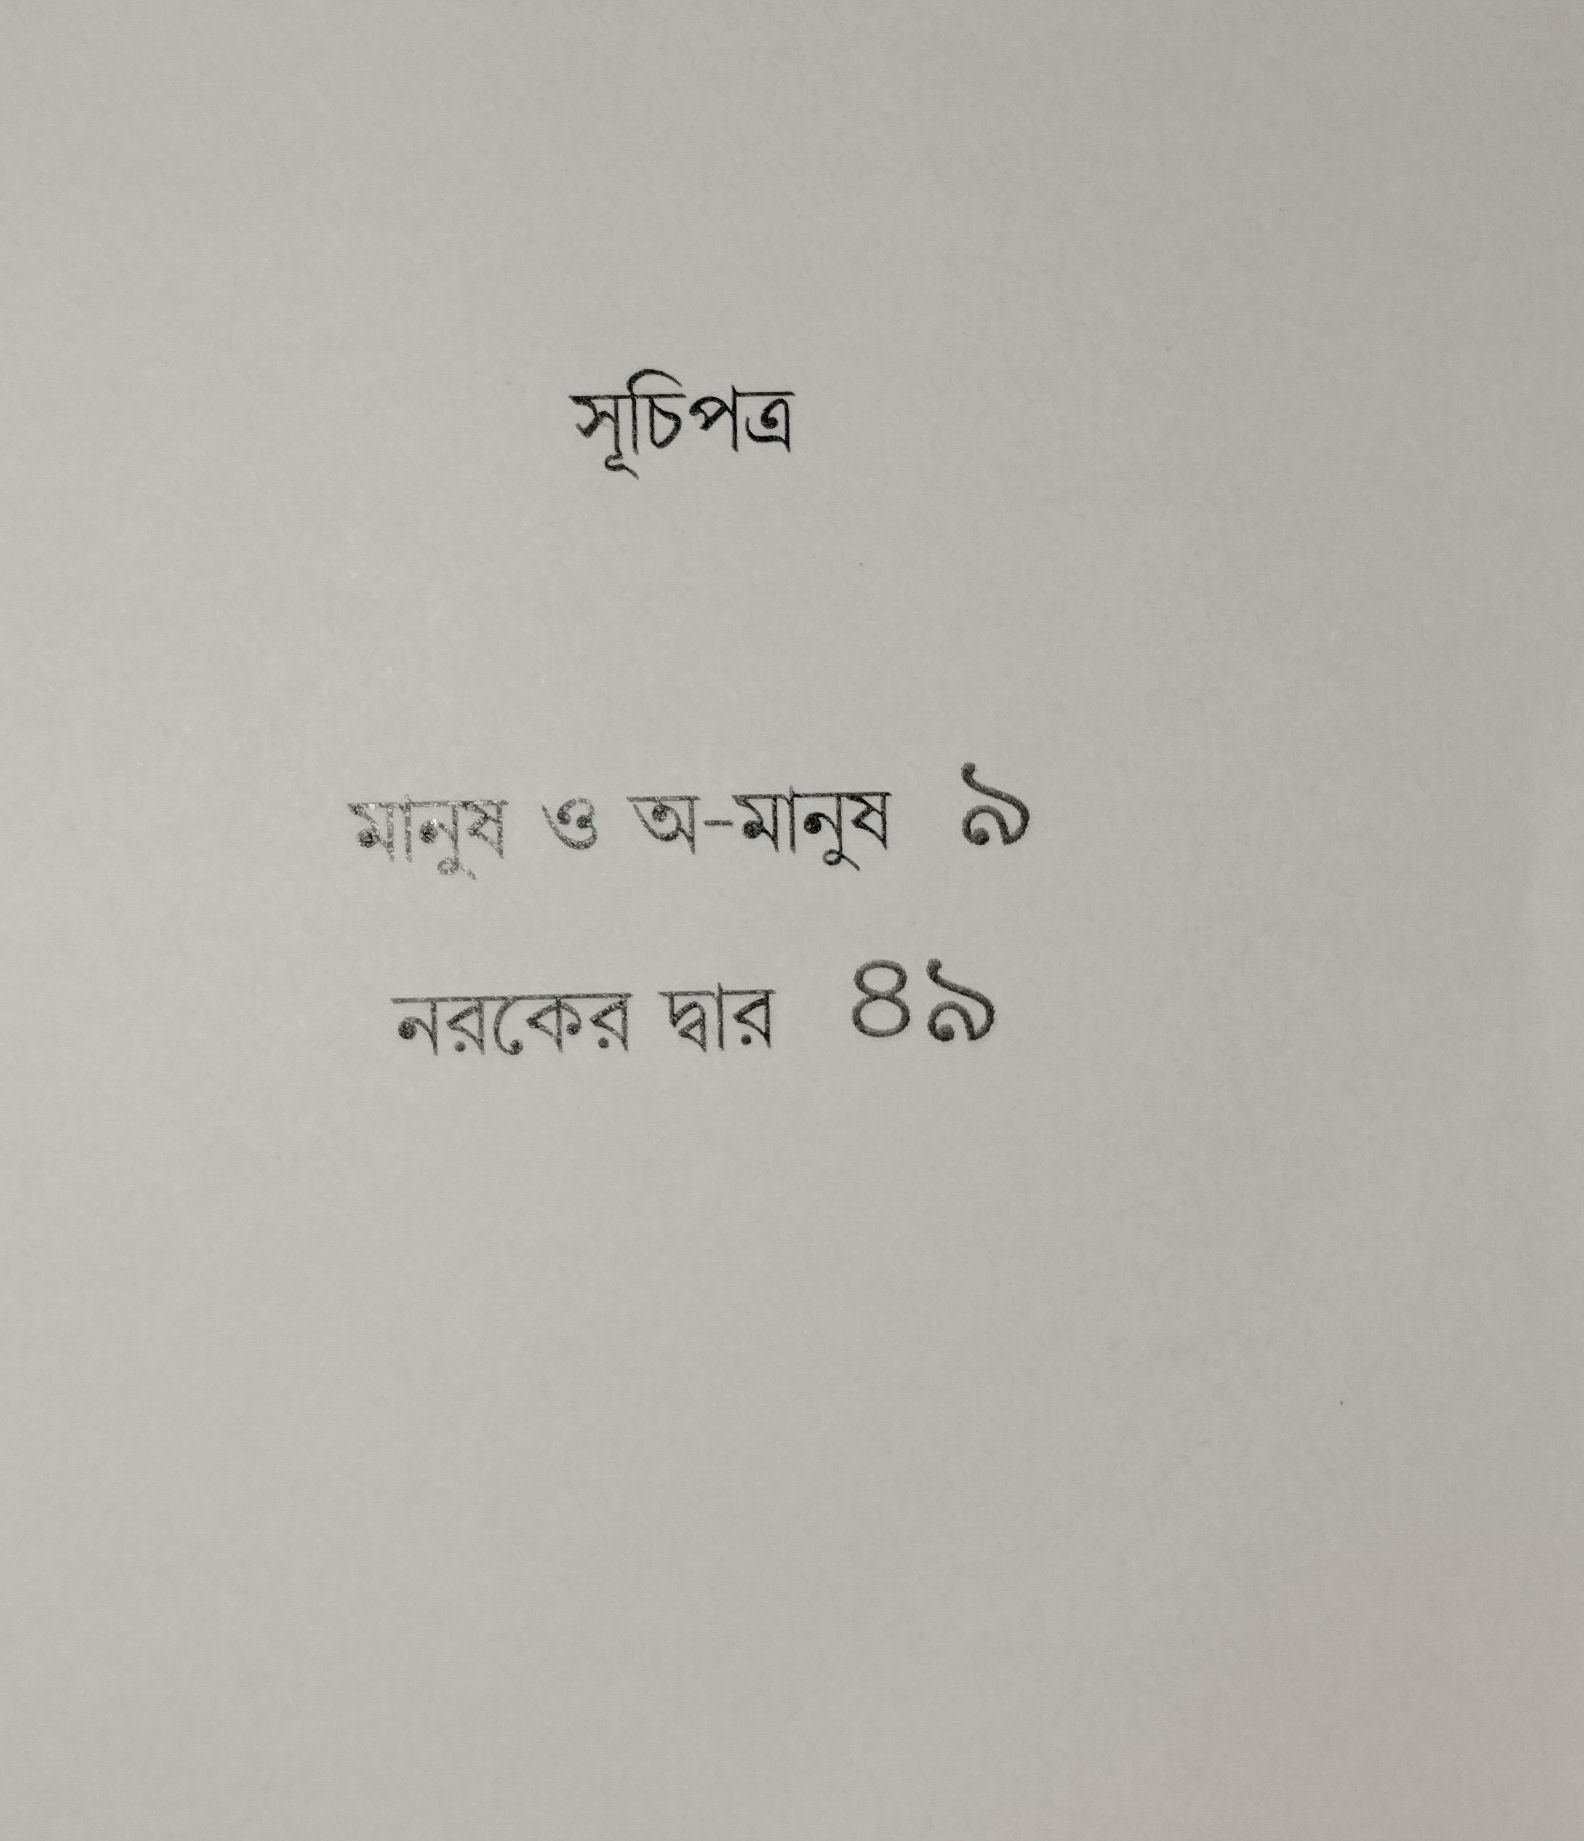 সূচিপত্র
মানুষ ও অ-মানুষ ৯
নরকের দ্বার ৪৯